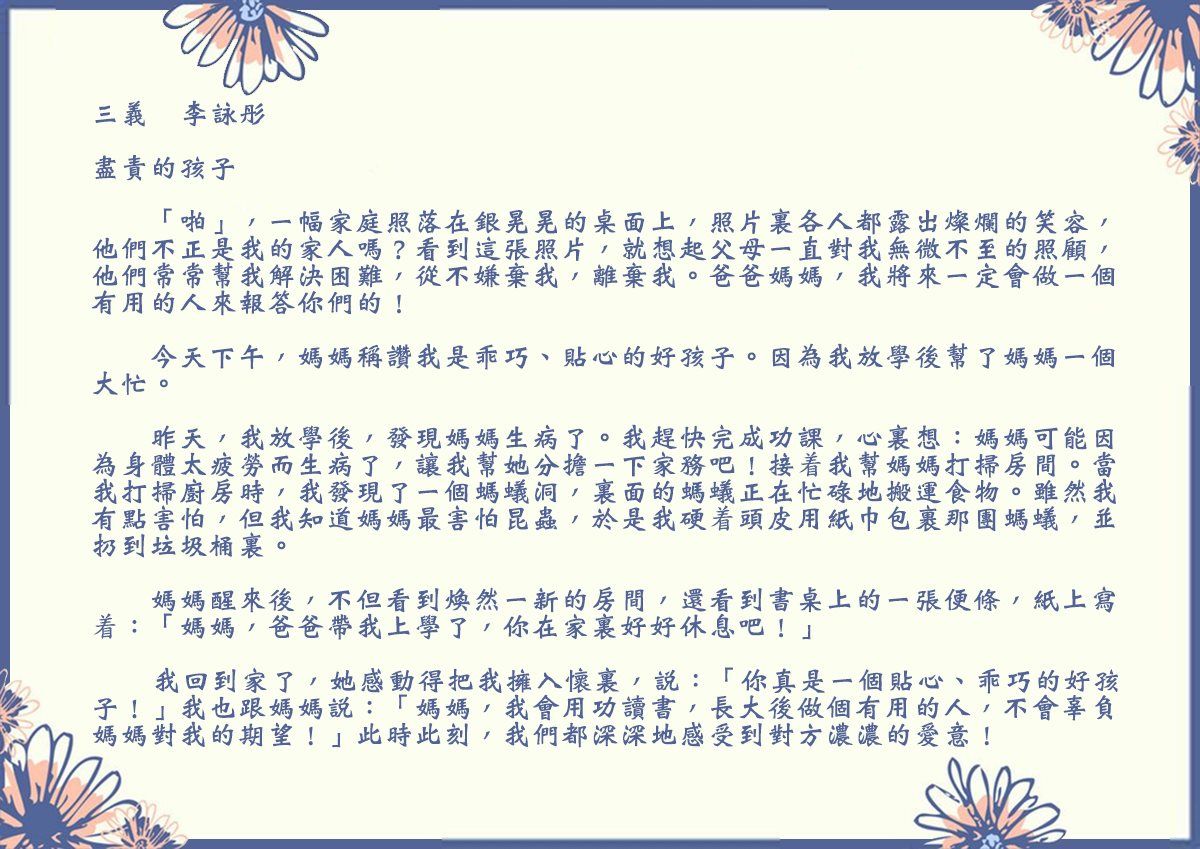 三義　李詠彤
盡責的孩子
「啪」，一幅家庭照落在銀晃晃的桌面上，照片裏各人都露出燦爛的笑容，
他們不正是我的家人嗎？看到這張照片，就想起父母一直對我無微不至的照顧，
他們常常幫我解決困難，從不嫌棄我，離棄我。爸爸媽媽，我將來一定會做一個
有用的人來報答你們的！
今天下午，媽媽稱讚我是乖巧、貼心的好孩子。因為我放學後幫了媽媽一個
大忙。
昨天，我放學後，發現媽媽生病了。我趕快完成功課，心裏想：媽媽可能因
為身體太疲勞而生病了，讓我幫她分擔一下家務吧！接着我幫媽媽打掃房間。當
我打掃廚房時，我發現了一個螞蟻洞，裏面的螞蟻正在忙碌地搬運食物。雖然我
有點害怕，但我知道媽媽最害怕昆蟲，於是我硬着頭皮用紙巾包裹那團螞蟻，並
扔到垃圾桶裏。
媽媽醒來後，不但看到煥然一新的房間，還看到書桌上的一張便條，紙上寫
着：「媽媽，爸爸帶我上學了，你在家裏好好休息吧！」
我回到家了，她感動得把我擁入懷裏，説：「你真是一個貼心、乖巧的好孩
子！」我也跟媽媽説：「媽媽，我會用功讀書，長大後做個有用的人，不會辜負
媽媽對我的期望！」此時此刻，我們都深深地感受到對方濃濃的愛意！